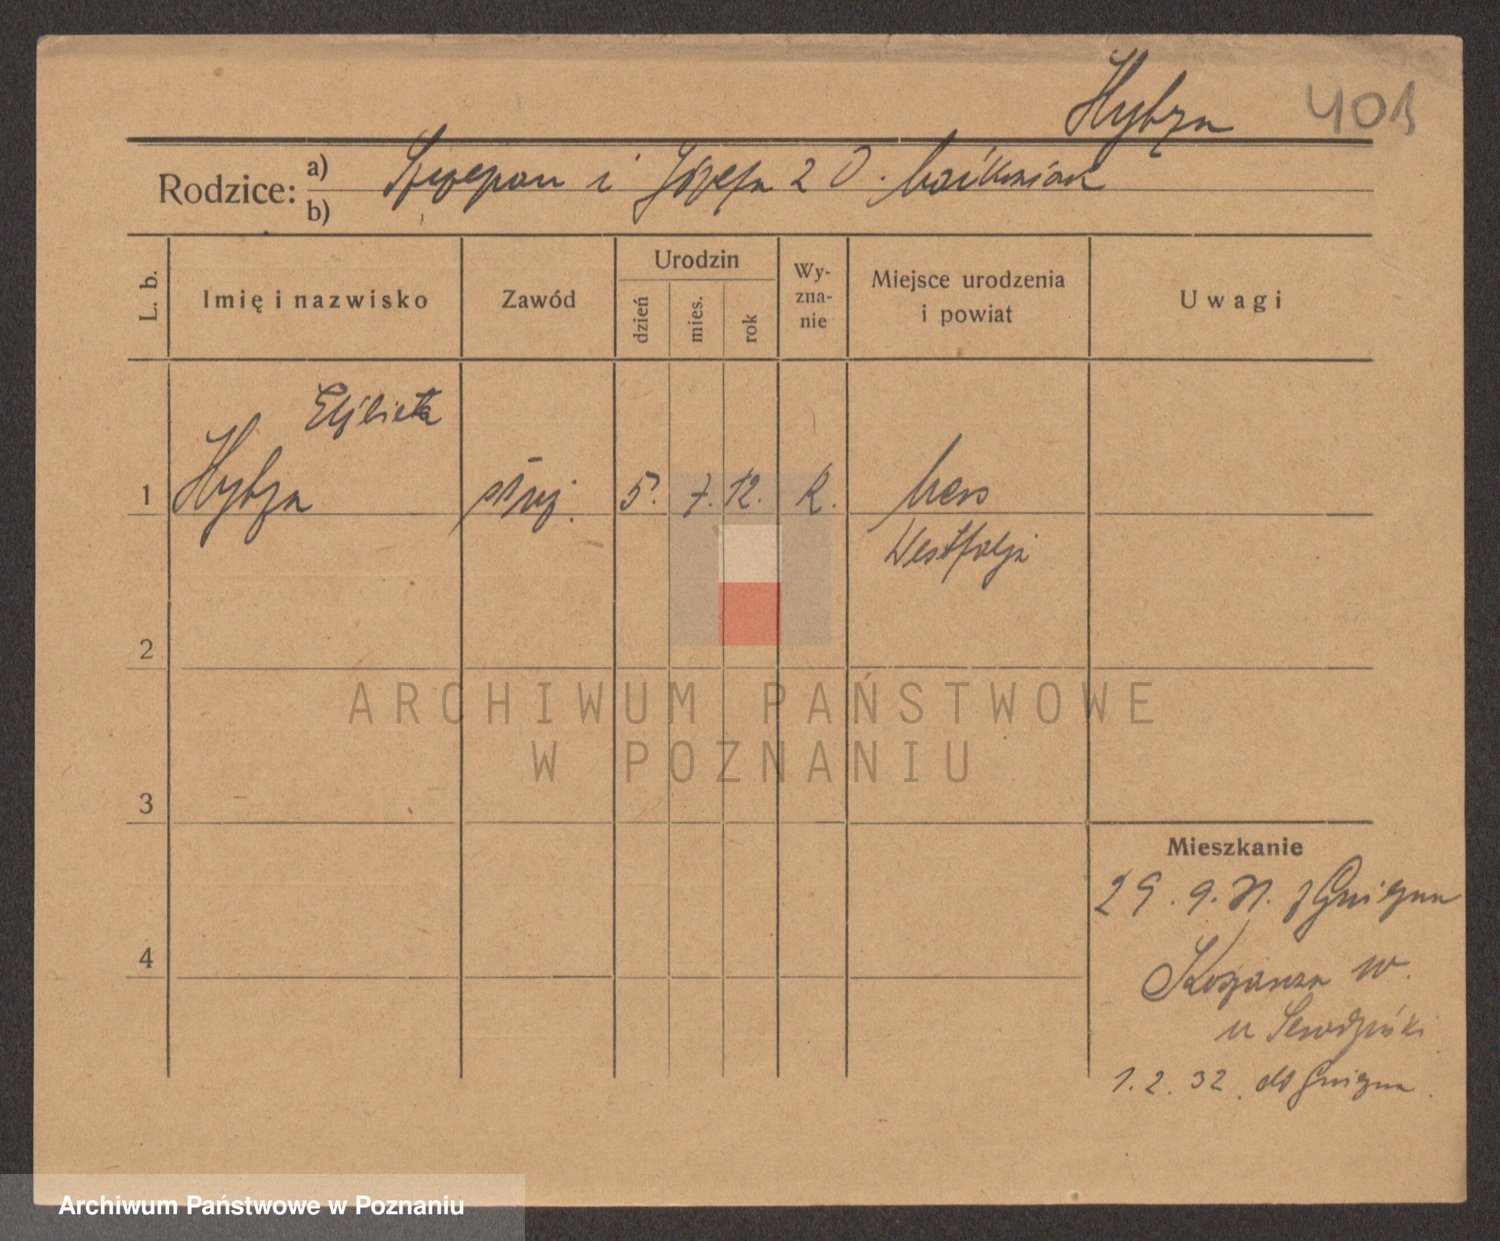 Hybza 401
Rodzice: a) Szczepan i Józefa z D.
b)
L. b.
Imię i nazwisko
Zawód
Urodzin
dzień
mies.
rok
Wy-
zna-
nie
Miejsce urodzenia
i powiat
Uwagi
Elżbieta
1 Hybza służ. 5. 7. 12. k.
Westfalja
2
3
4
ARCHIWUM PAŃSTWOWE
W POZNANIU
Mieszkanie
29. 9. 31. z Gniezna
w.
u
1. 2. 32. do Gniezna.
Archiwum Państwowe w Poznaniu